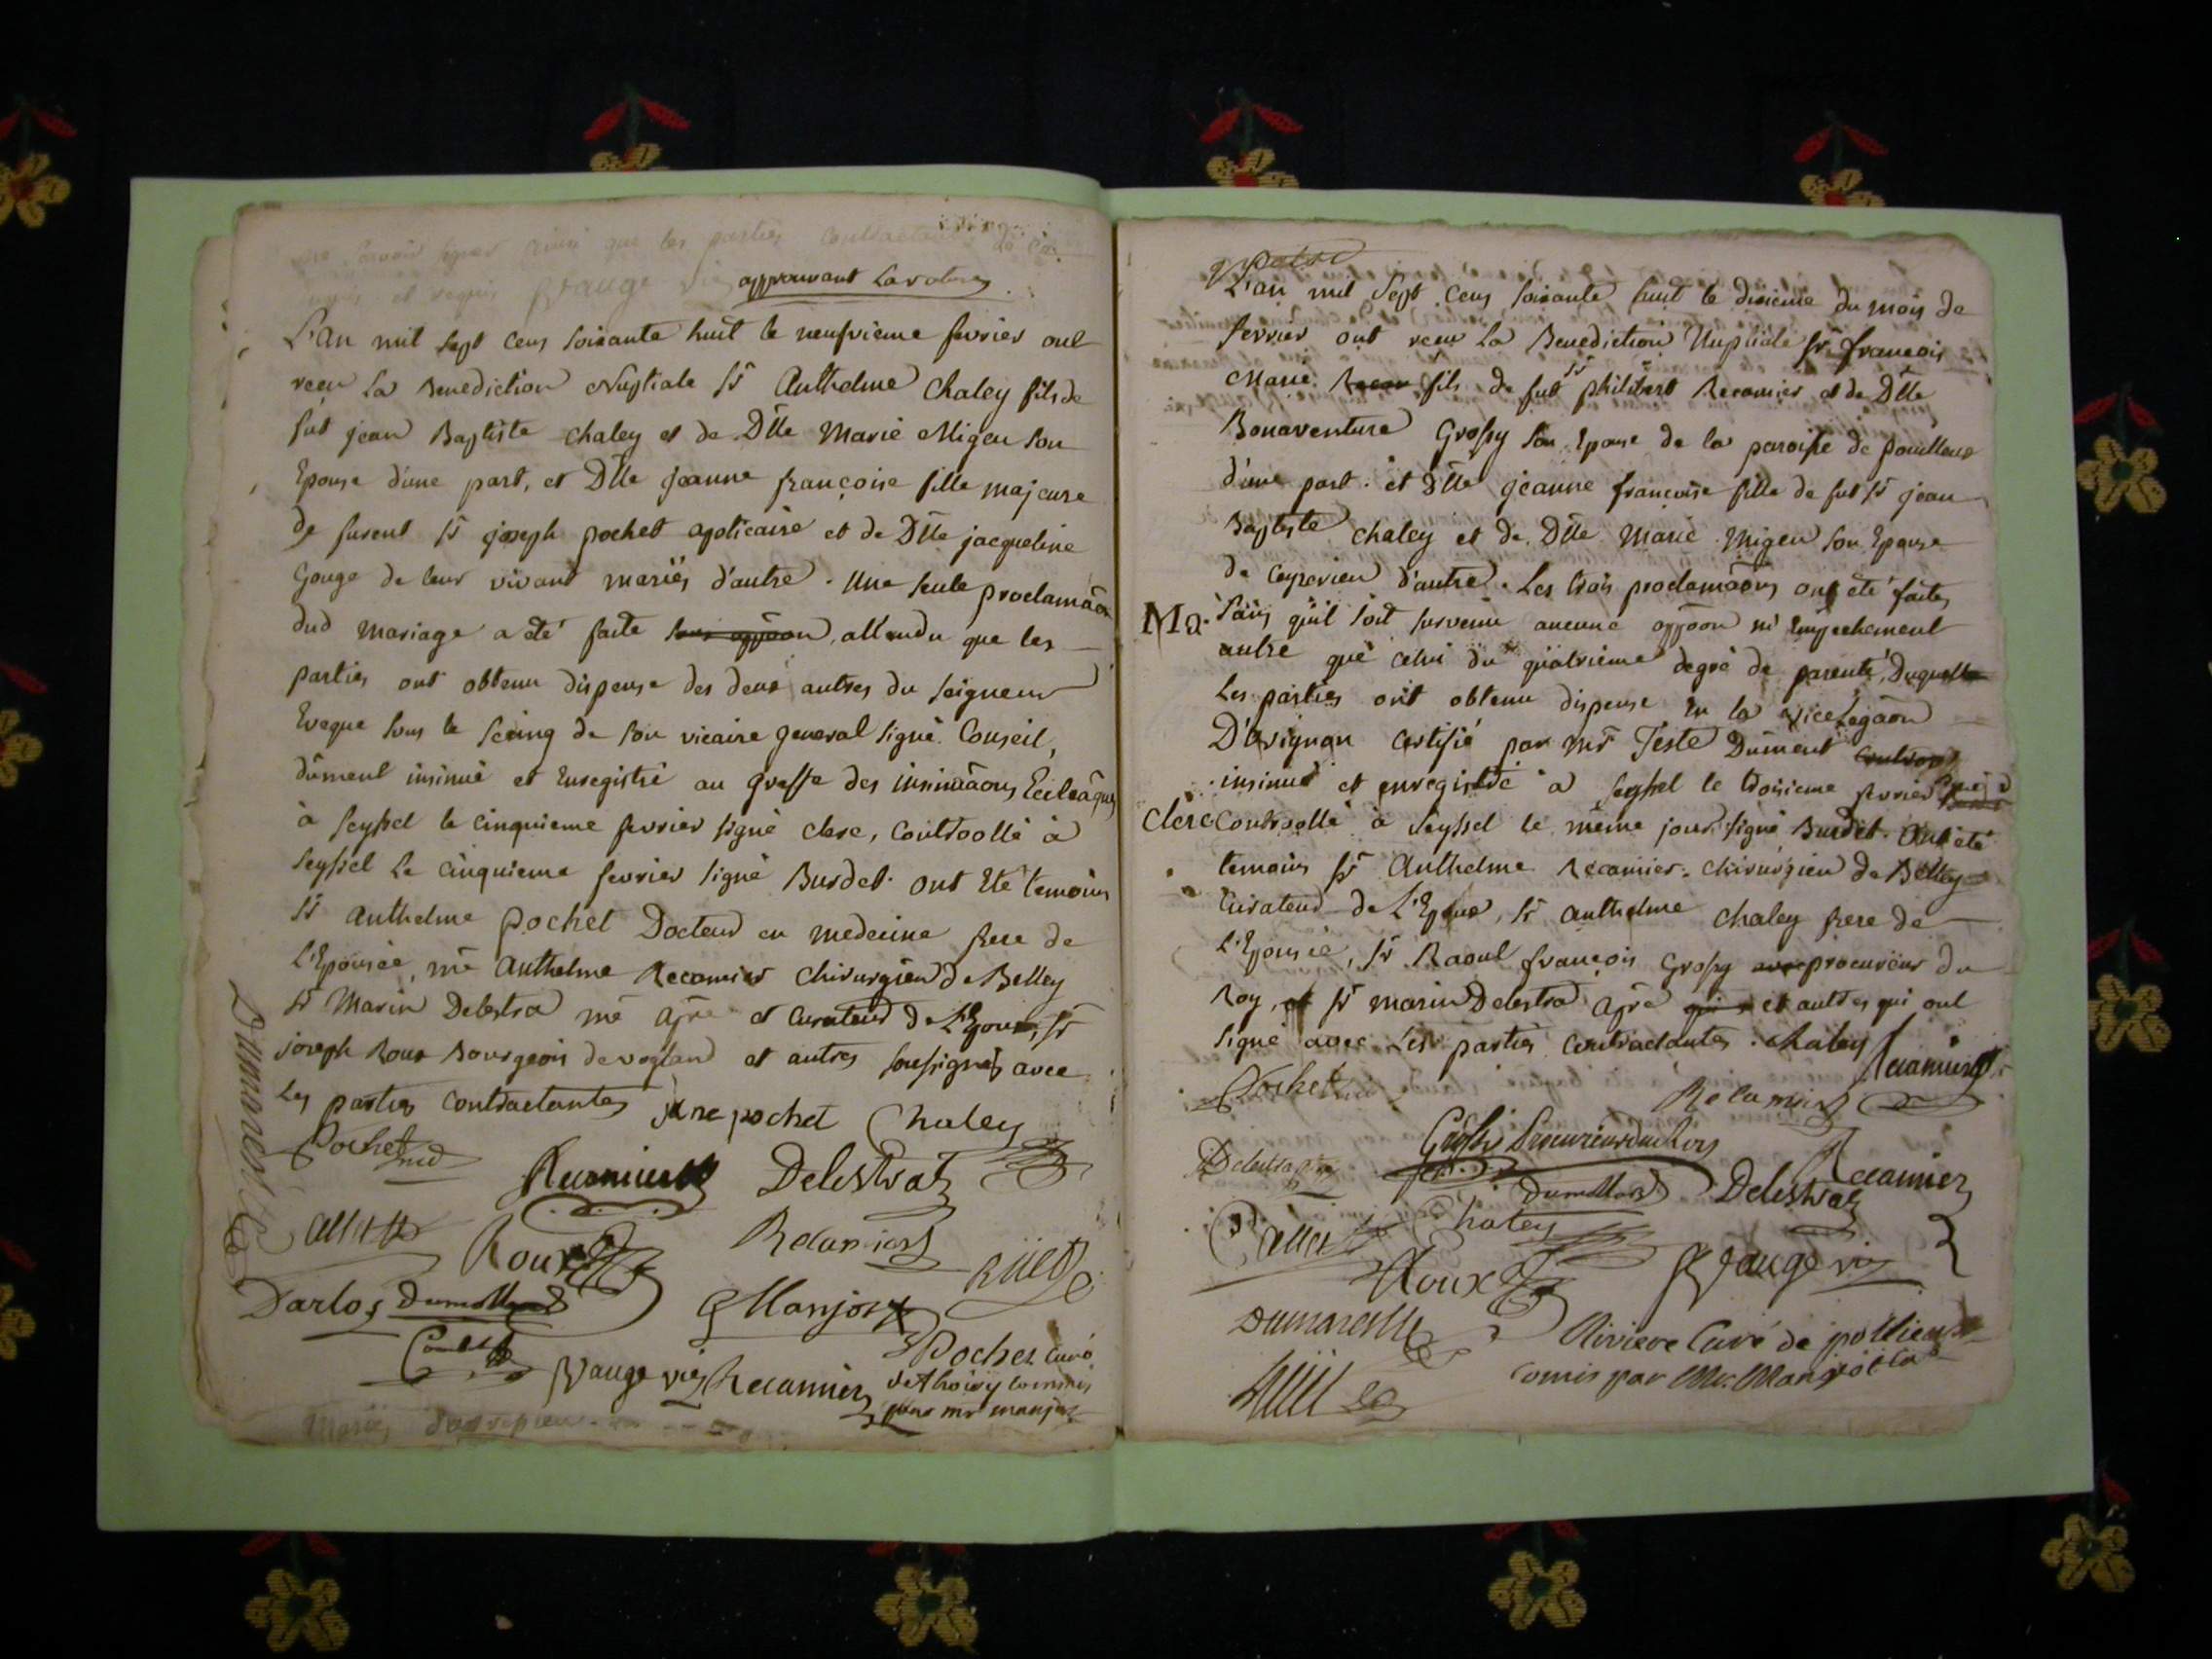 scavoir signer ainsi que les parties contractantes de ce
enquis et requis Vauge vic approuvant la rature
L'an mil sept cens soixante huit le neufvieme fevrier ont
receu la Benediction Nuptiale Sr Anthelme Chaley fils de
fut jean Baptiste chaley et de Dlle Marie Migeu son
Epouse d'une part, et Dlle jeanne françoise fille majeure
de furent Sr joseph pochet apoticaire et de Dlle jacqueline
Gouge de leur vivant mariés d'autre. Une seule proclamãon
dud mariage a été faite sans oppõon, attendu que les
parties ont obtenu dispense des deux autres du seigneur
Eveque sous le seing de son vicaire general signé Conseil,
dûment insinué et Enregistré au greffe des insinuãons Eccleâques
à Seyssel le cinquieme fevrier signé clerc, controollé à
Seyssel Le cinquieme fevrier signé Burdet. ont Eté temoins
Sr anthelme pochet Docteur en medecine frere de
L'Epousée, me Anthelme Recamier chirurgien de Belley
Sr Marin Delestra me apre et curateur de L'Epoux, Sr
joseph Roux Bourgeois de voglan et autres soussignés avec
Les parties contractantes jne pochet Chaley
Pochet md
Recamier Delestraz
Dumarest
Roux Recamier
Rüet
Darlos Dumollard Manjot
Pochet curé
Vauge vic Recamier de thoisy commis
par mr manjot
L'an mil Sept cens soixante huit le dixieme du mois de
fevrier ont receu la Benediction Nuptiale Sr françois
Marie Recam fils de fut Sr philibert Recamier et de Dlle
Bonaventure Grossy son Epouse de la paroisse de pouilleux
d'une part. et Dlle jeanne françoise fille de fut Sr jean
Baptiste chaley et de Dlle Marie Migeu son Epouse
de Ceyzerieu d'autre. Les trois proclamãons ont été faites
Ma. sans qu'il soit survenu aucune oppõon ni Empechement
autre que celui du quatrieme degré de parenté, Duquelle
Les parties ont obtenu dispense En la vicelegãon
D'avignon certifié par mr Teste Dûment controo
insinué et enregistré à Seyssel le troisieme fevrier signé
clerc Controollé à Seyssel le même jour signé Burdet. Ont été
temoins Sr Anthelme Recamier chirurgien de Belley
Curateur de L'Epoux, Sr anthelme chaley frere de
L'Epousée, Sr Raoul françois Grossy avo procureur du
Roy, et Sr marin Delestra apre qui et autres qui ont
signé avec Les parties contractantes. chaley Recamier
Pochet Recamier
Grossy Procureur du Roy
Delestra Recamier
Dumollard Delestraz
Chaley
Roux Vauge vic
Dumarest Riviere Curé de pollieux
Rüet comis par Mr. Manjot